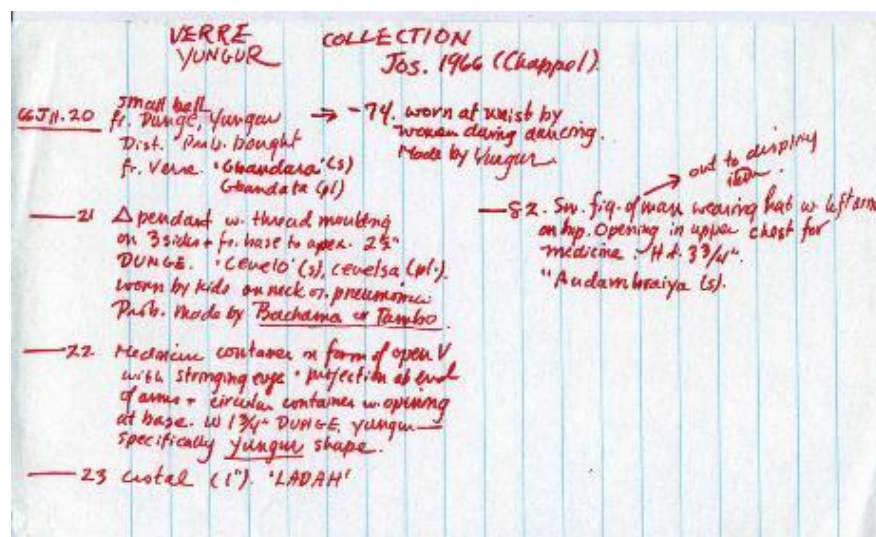 VERRE COLLECTION
YUNGUR Jos. 1966 (Chappel).
66J11.20 small bell
fr. Dunge, Yungur
Dist. Prob. bought
fr. Verre. 'Gbandara' (s)
Gbandata (pl)
21 △ pendant w. thread moulding
on 3 sides + fr. base to apex. 2½"
DUNGE. 'Cevelo' (s), cevelsa (pl.).
worn by kids on neck pneumonia
Prob. made by Bachama or Tambo.
22 Medicine container in form of open V
with stringing eye + projection at end
of arms + circular container w. opening
at base. W 1¾" DUNGE, Yungur —
specifically Yungur shape.
23 (1"). 'LADAH'
→ -74. worn at waist by
women during dancing.
Made by Vungur.
82. Sm. fig. of man wearing hat w. left arm
on hip. Opening in upper chest for
medicine. Ht. 3¾".
(s).
→ out to display
item.